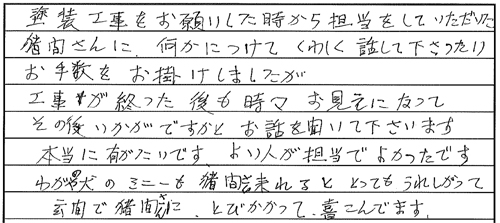 塗装工事をお願いした時から担当をしていただいた
猪間さんに、何かにつけてくわしく話して下さったり
お手数をお掛けしましたが
工事が終った後も時々お見えになって
その後いかがですかとお話を聞いて下さいます
本当に有がたいです、よい人が担当でよかったです
わが愛犬のミニーも猪間さん来れるととってもうれしがって
玄関で猪間さんに、とびかかって、喜こんでます。